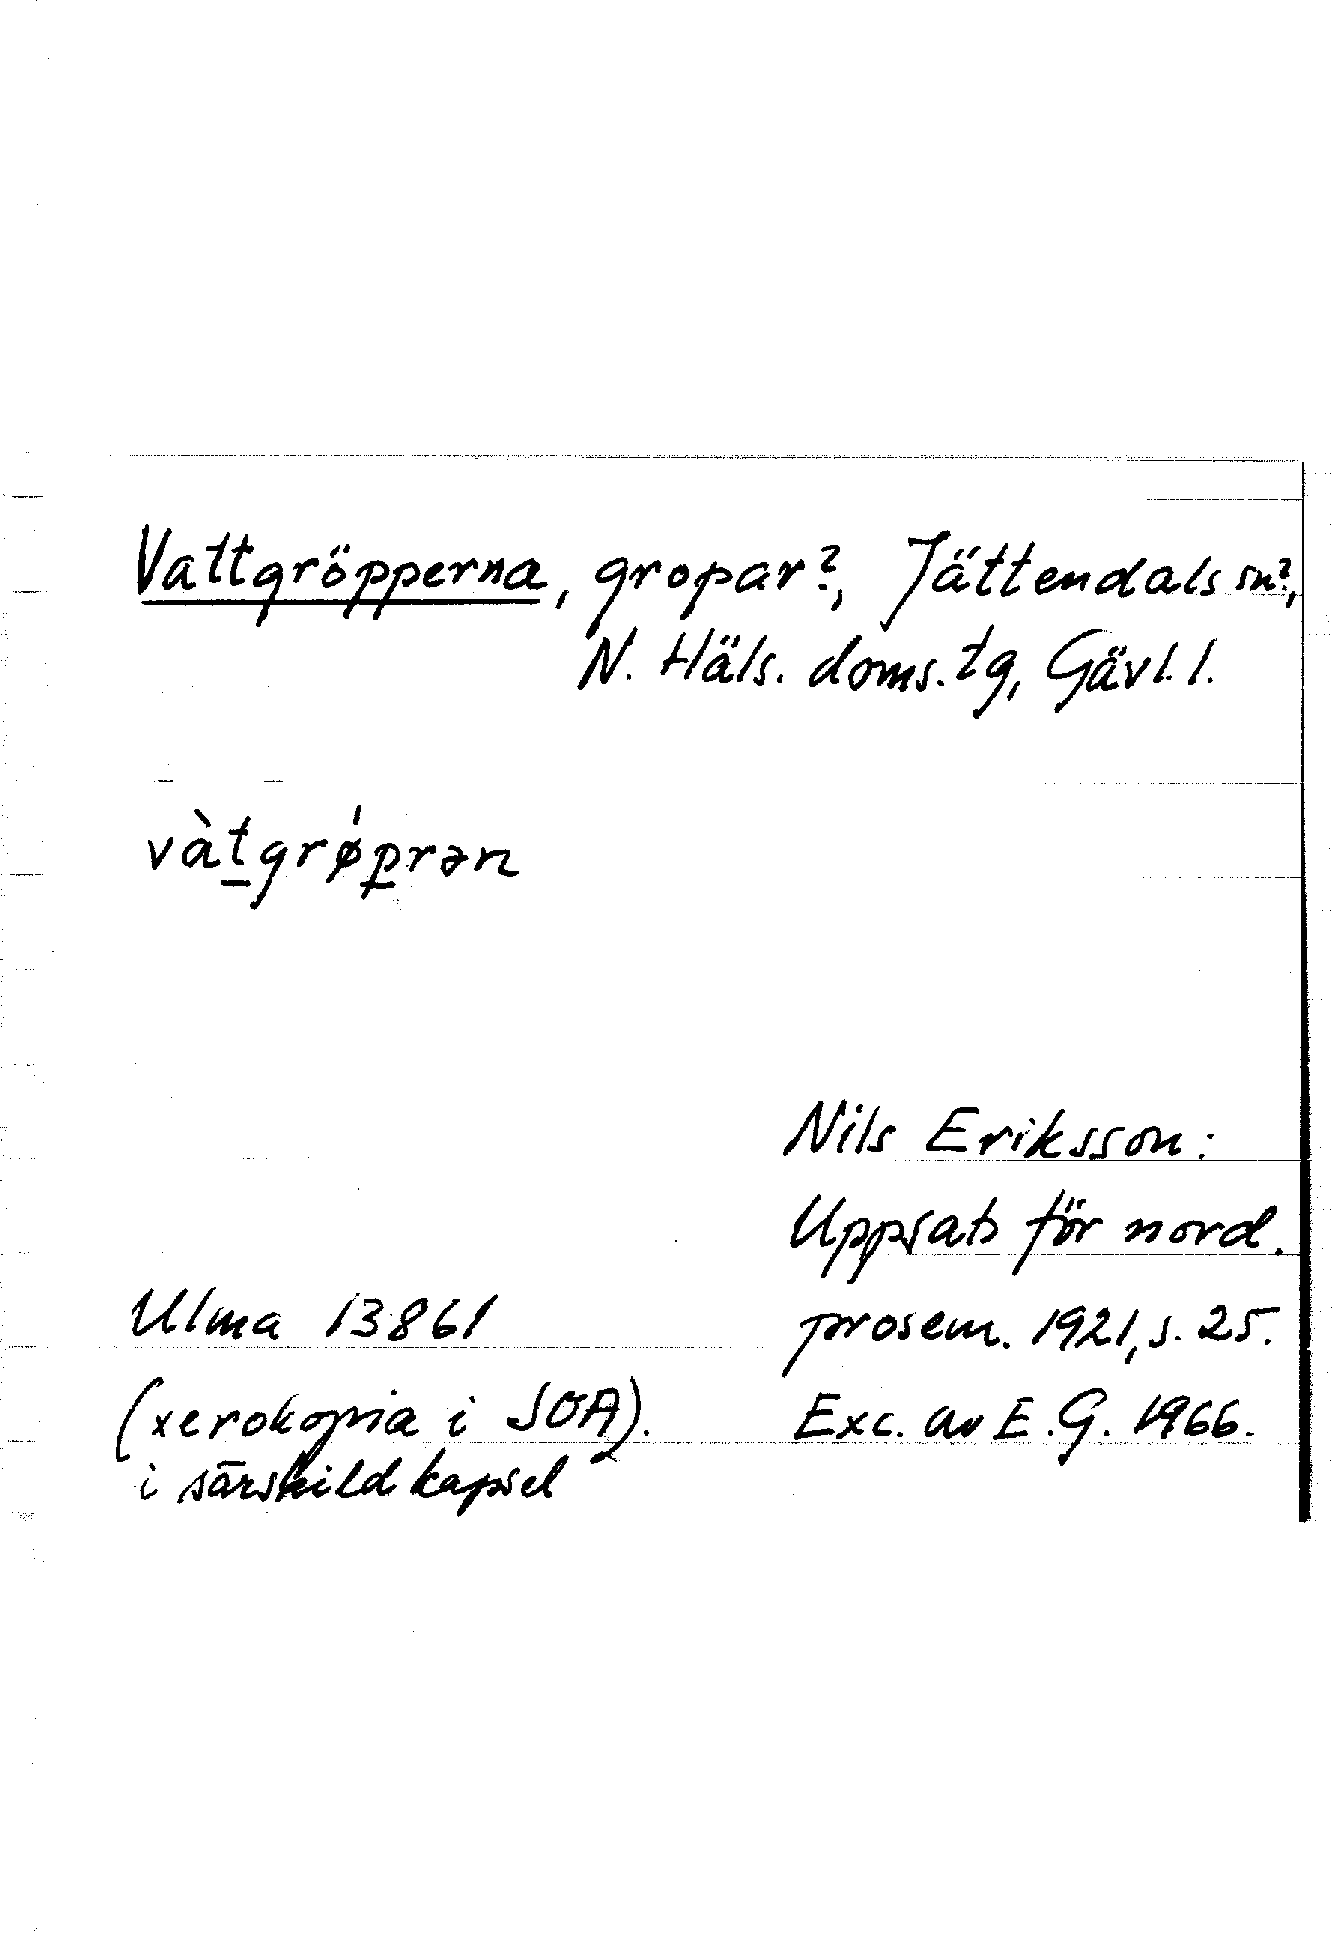 Vattgröpperna, gropar?, Jättendals sn?,
N. Häls. doms. tg, Gävl. l.
vàt̠grǿp̠rən
Nils Eriksson:
Uppsats för nord.
prosem. 1921, s. 25.
Exc. av E. G. 1966.
Ulma 13861
(xerokopia i SOA).
i särskild kapsel